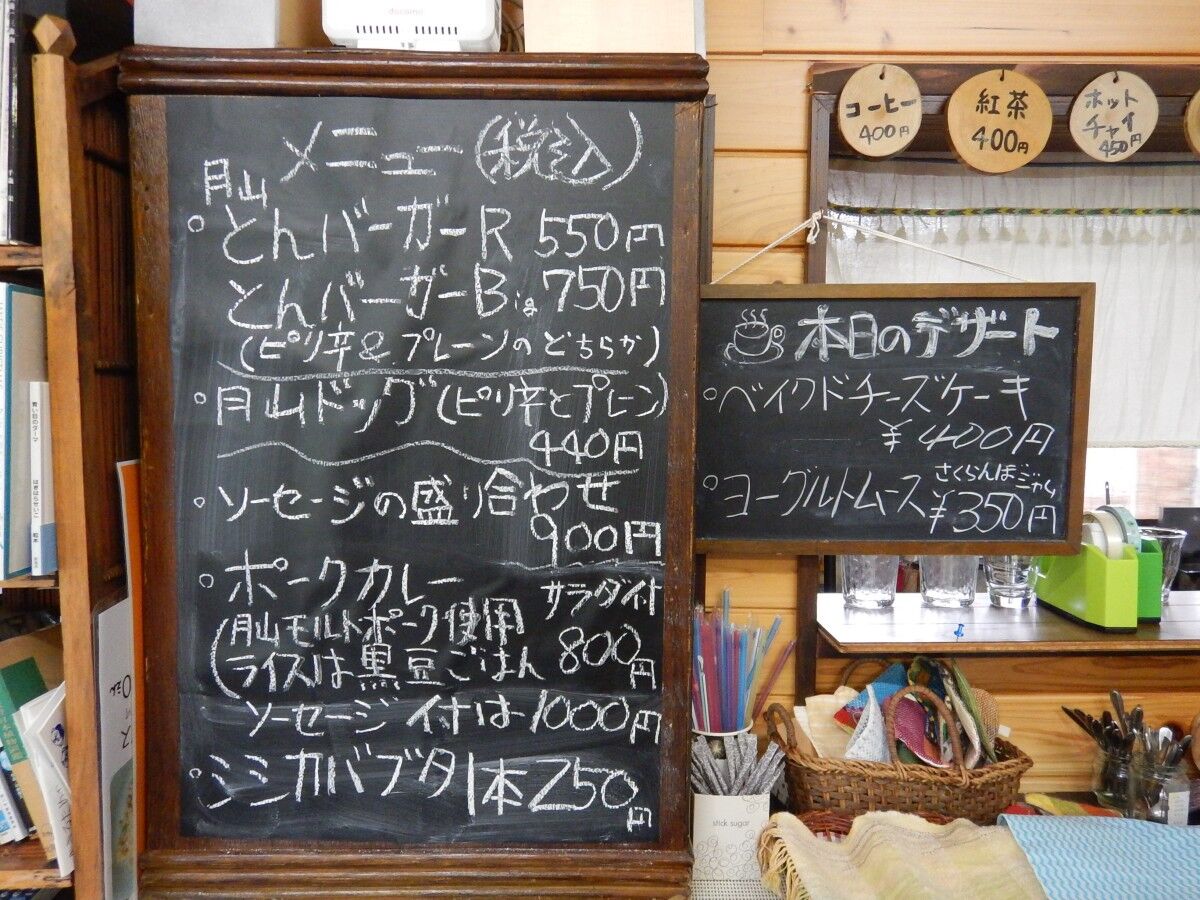 docomo
メニュー(税込)
月山
。とんバーガーR 550円
とんバーガーBは750円
(ピリ辛&プレーンのどちらか)
。月山ドッグ(ピリ辛とプレーン)
440円
。ソーセージの盛り合わせ
900円
。ポークカレー サラダ付
(月山モルトポーク使用 800円
ライスは黒豆ごはん
ソーセージ付は1000円
。シシカバブタ1本250円
コーヒー
400円
紅茶
400円
ホット
チャイ
450円
本日のデザート
。ベイクドチーズケーキ
¥400円
さくらんぼジャム
。ヨーグルトムース ¥350円
stick sugar
青い目のダーマ